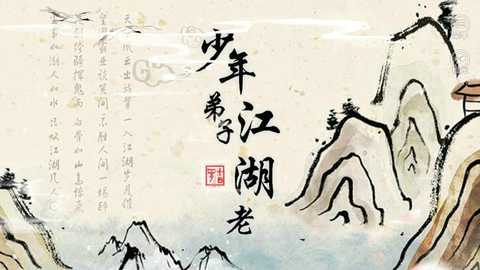 少年
弟子
江湖
老
天下风云出我辈 一入江湖岁月催
皇图霸业谈笑间 不胜人间一场醉
提剑跨骑挥鬼雨 白骨如山鸟惊飞
尘事如潮人如水 只叹江湖几人回